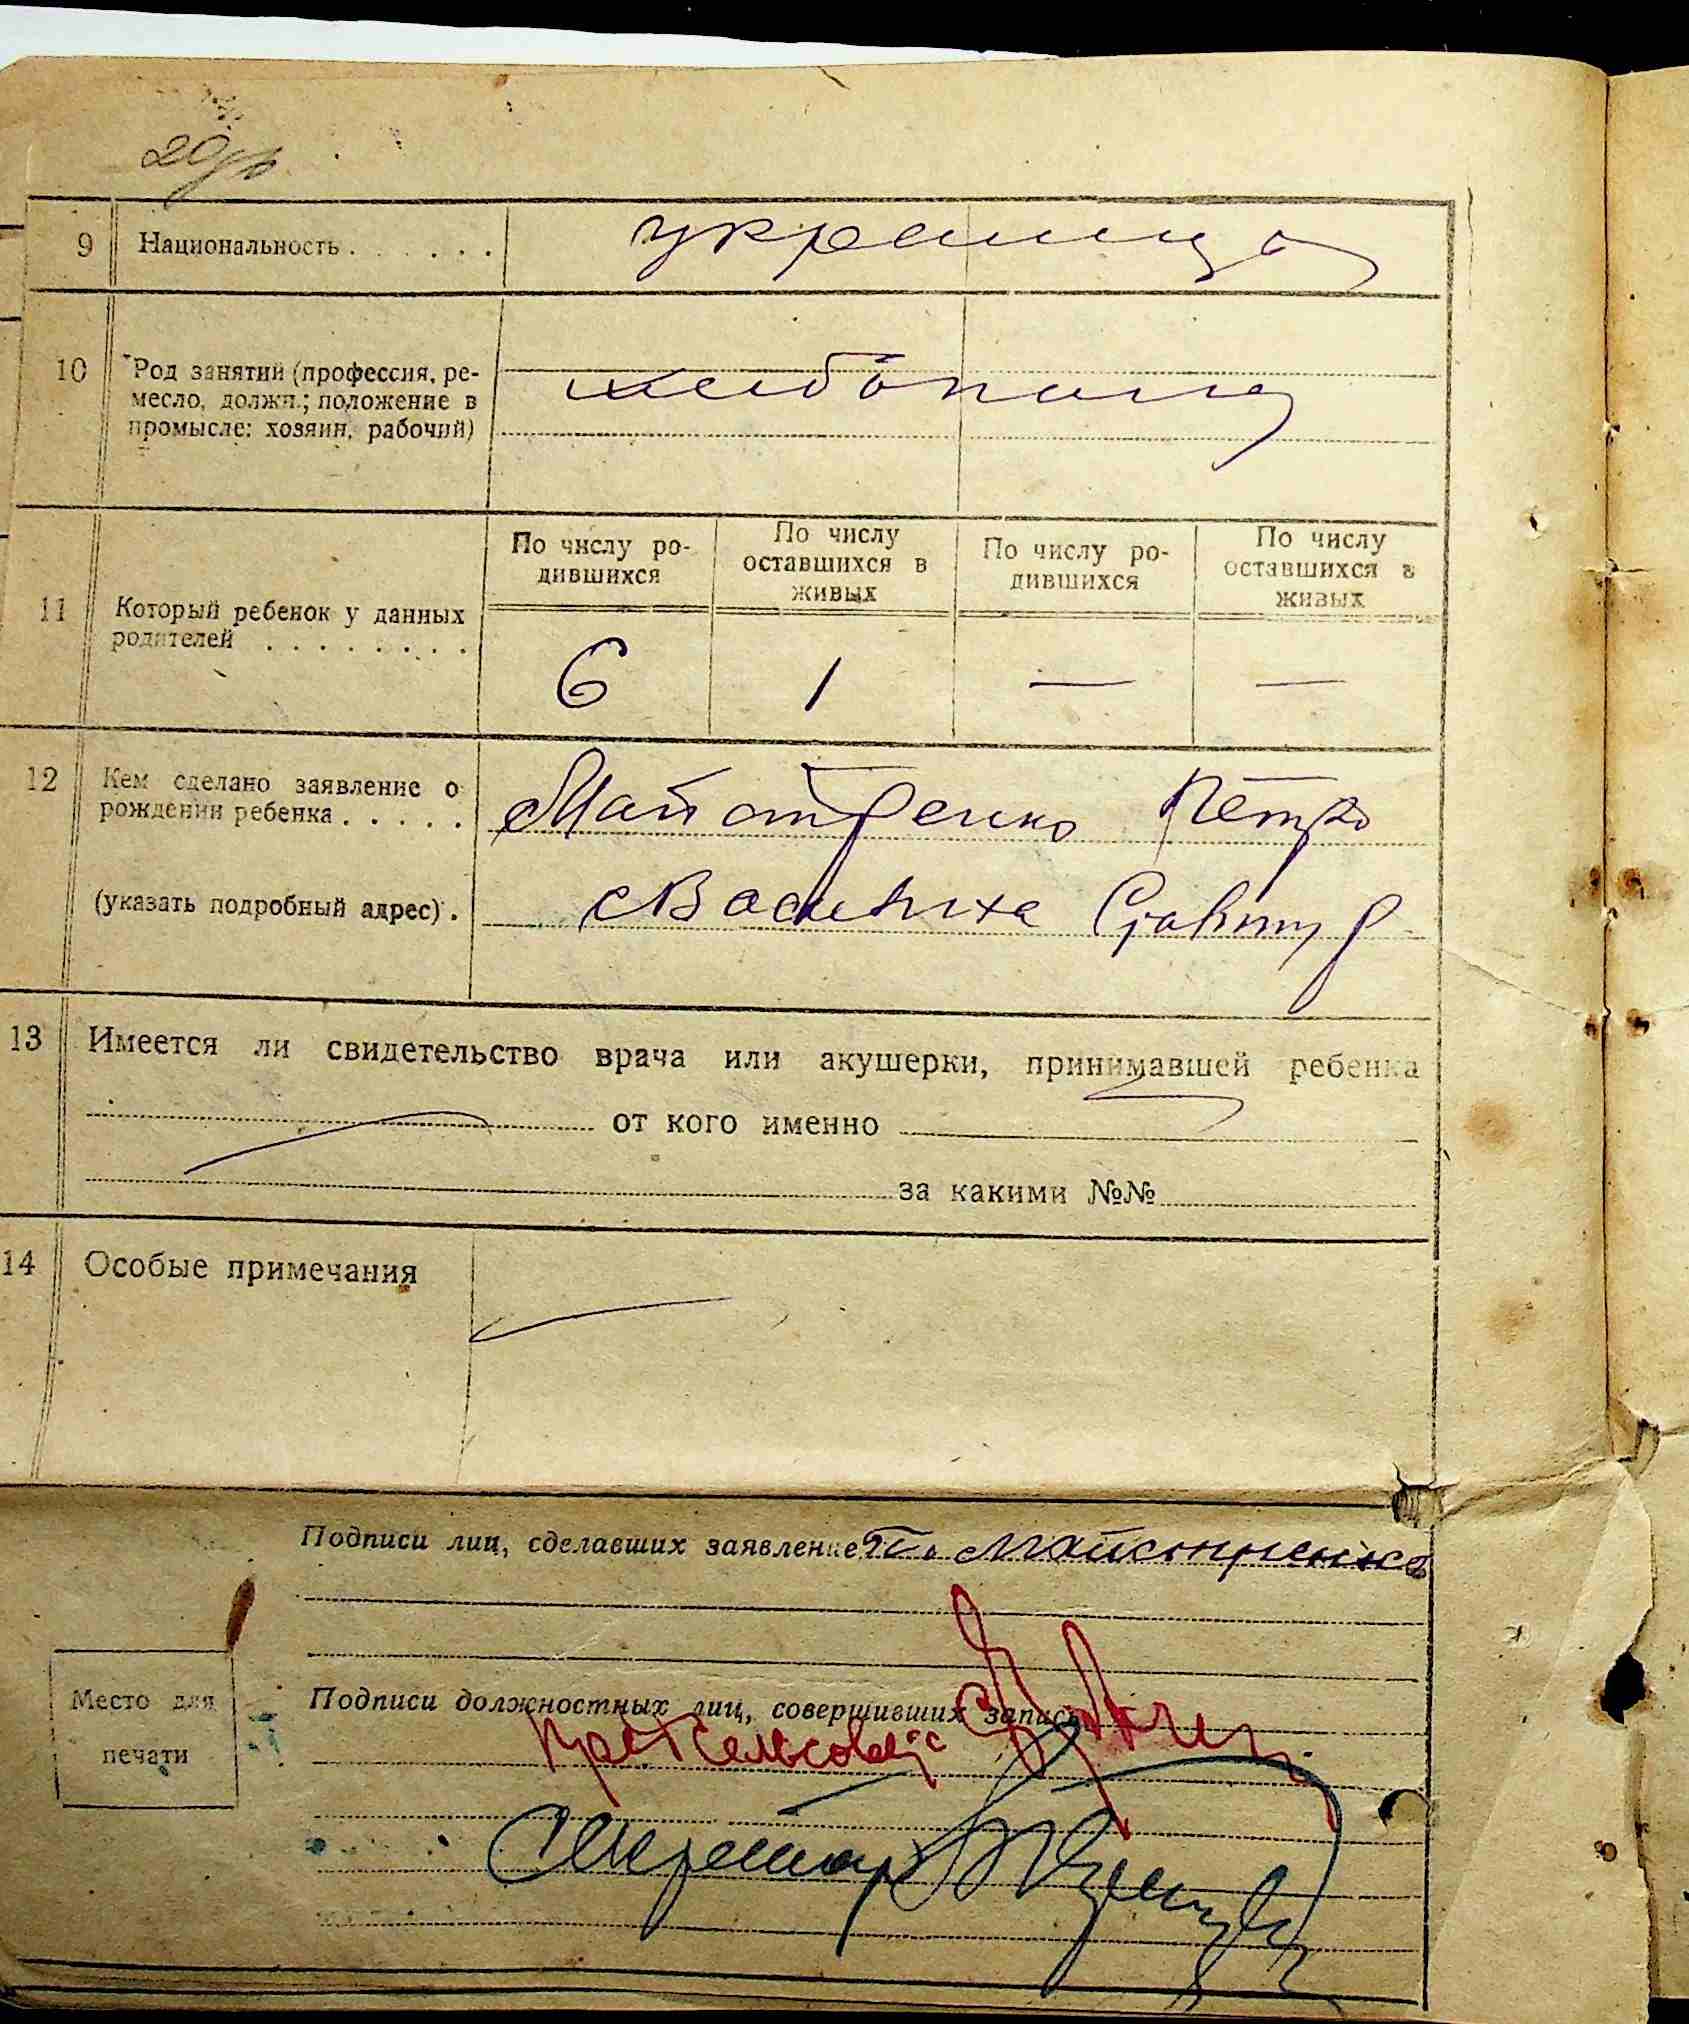 9 Национальность . . . . . . украинцы
10 Род занятий (профессия, ре-
месло, должн.; положение в
промысле: хозяин, рабочий)
По числу ро-
дившихся
По числу
оставшихся в
живых
По числу ро-
дившихся
По числу
оставшихся в
живых
11 Который ребенок у данных
родителей . . . . . . . .
6 1 — —
12 Кем сделано заявление о
рождении ребенка . . . . . Майстренко Петро
(указать подробный адрес) . с Василиха
13 Имеется ли свидетельство врача или акушерки, принимавшей ребенка
от кого именно
за какими №№
14 Особые примечания
Подписи лиц, сделавших заявление П. Майстренко
Подписи должностных лиц, совершивших запись
Место для
печати
Секретар